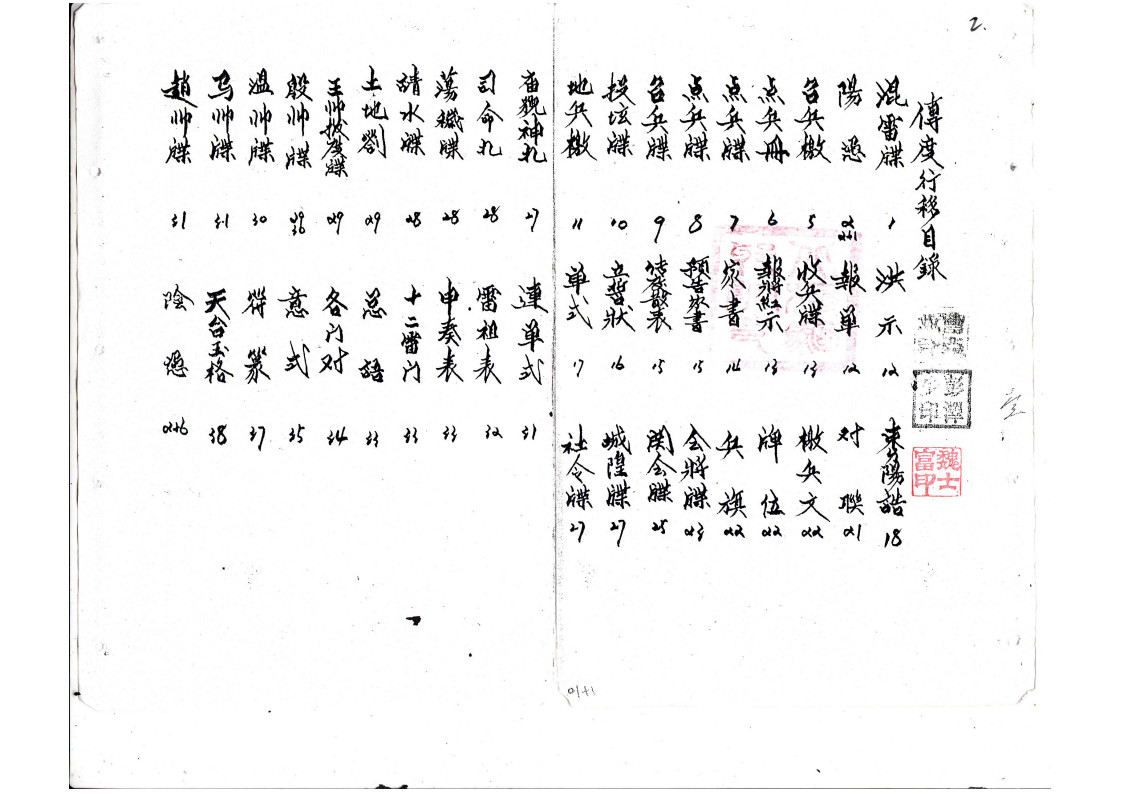 2.
傳度行移目錄
混雷牒 1 洪示 12 東嶽誥 18
陽憑 報单 12 对聯 21
召兵檄 5 收兵牒 13 檄兵文 22
点兵冊 6 報將紅示 13 牌位 22
点兵牒 7 家書 14 兵旗 22
点兵牒 8 預告家書 15 会將牒 23
召兵牒 9 表 15 関会牒 25
投坛牒 10 立誓狀 16 城隍牒 27
地兵檄 11 单式 17 社令牒 27
神札 27 連单式 31
司命札 28 雷祖表 32
蕩穢牒 28 申奏表 33
請水牒 28 十二雷门 33
土地劄 29 总語 33
王帅拔度牒 29 各门对 34
殷帅牒 意式 35
温帅牒 30 符篆 37
马帅牒 31 天台玉格 38
趙帅牒 31 陰憑
彭澤
印
魏士
富印